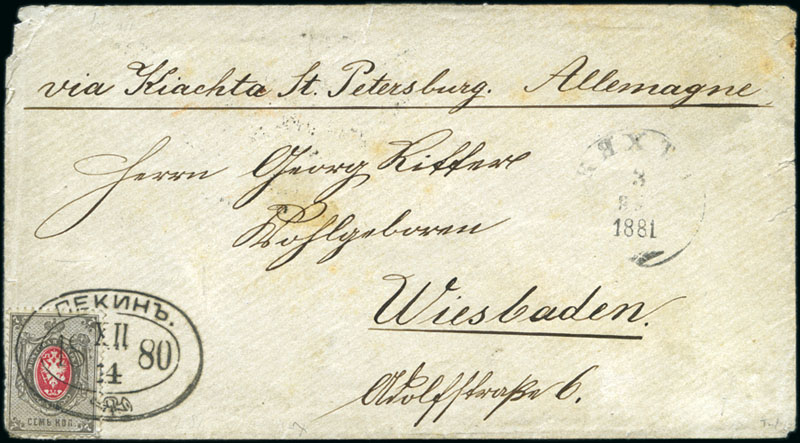 via Kiachta St. Petersburg. Allemagne
Herrn Georg Ritter
Wohlgeboren
Wiesbaden.
Adolfstraße 6.
КЯХТ
3
1881
ПЕКИНЪ.
18 XII 80
14
СЕМЬ КОП.